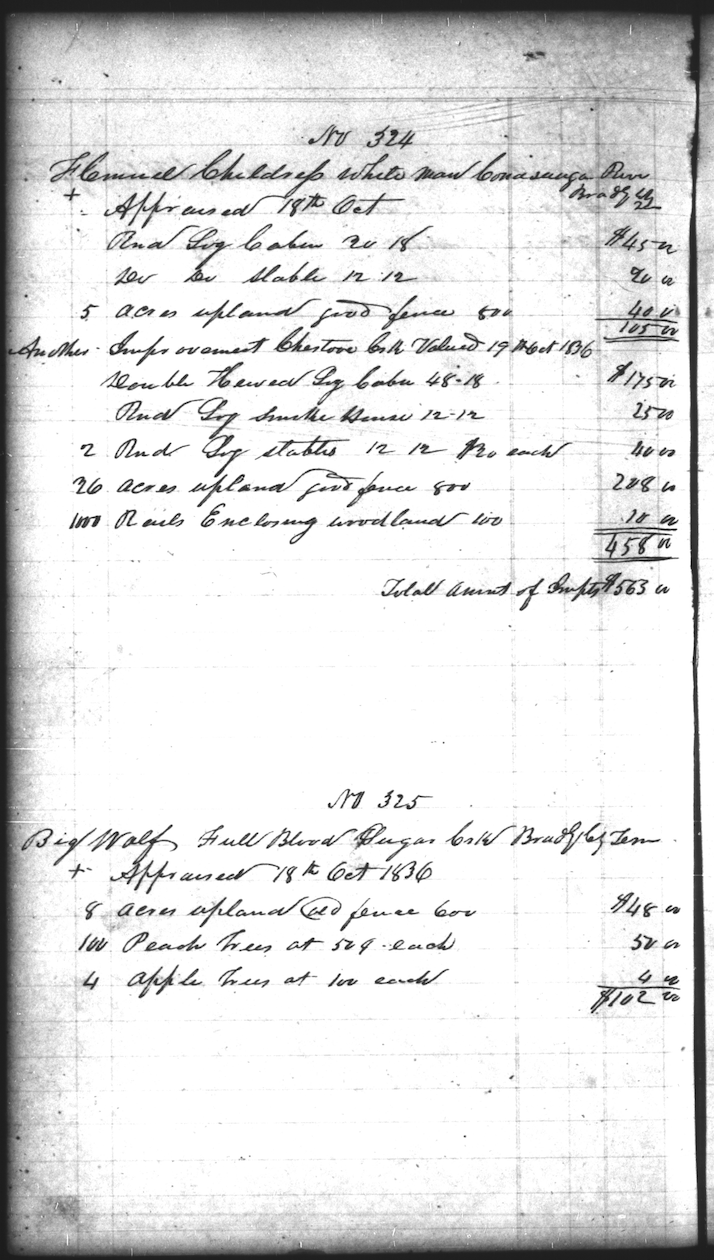 No 324
Flemuel Childress White man Conasauga River
Bradly Co
+ Appraised 18th Oct
Rnd Log Cabin 20 18 $45 00
Do Do Stable 12 12 20 00
5 acres upland good fence 800 40 00
105 00
Another Improvement Chestooe Crk Valued 19th Oct 1836
Double Hewed Log Cabin 48-18 $175 00
Rnd Log Smoke House 12-12 25 00
2 Rnd Log stables 12 12 $20 each 40 00
26 acres upland good fence 800 208 00
1000 Rails Enclosing woodland 100 10 00
458 00
Totall Amnt of Impts $563 00
No 325
Big Wolf Full Blood Sugar Crk Bradly Co Tenn
+ Appraised 18th Oct 1836
8 acres upland old fence 600 $48 00
100 Peach Trees at 50¢ each 50 00
4 apple Trees at 100 each 4 00
$102 00